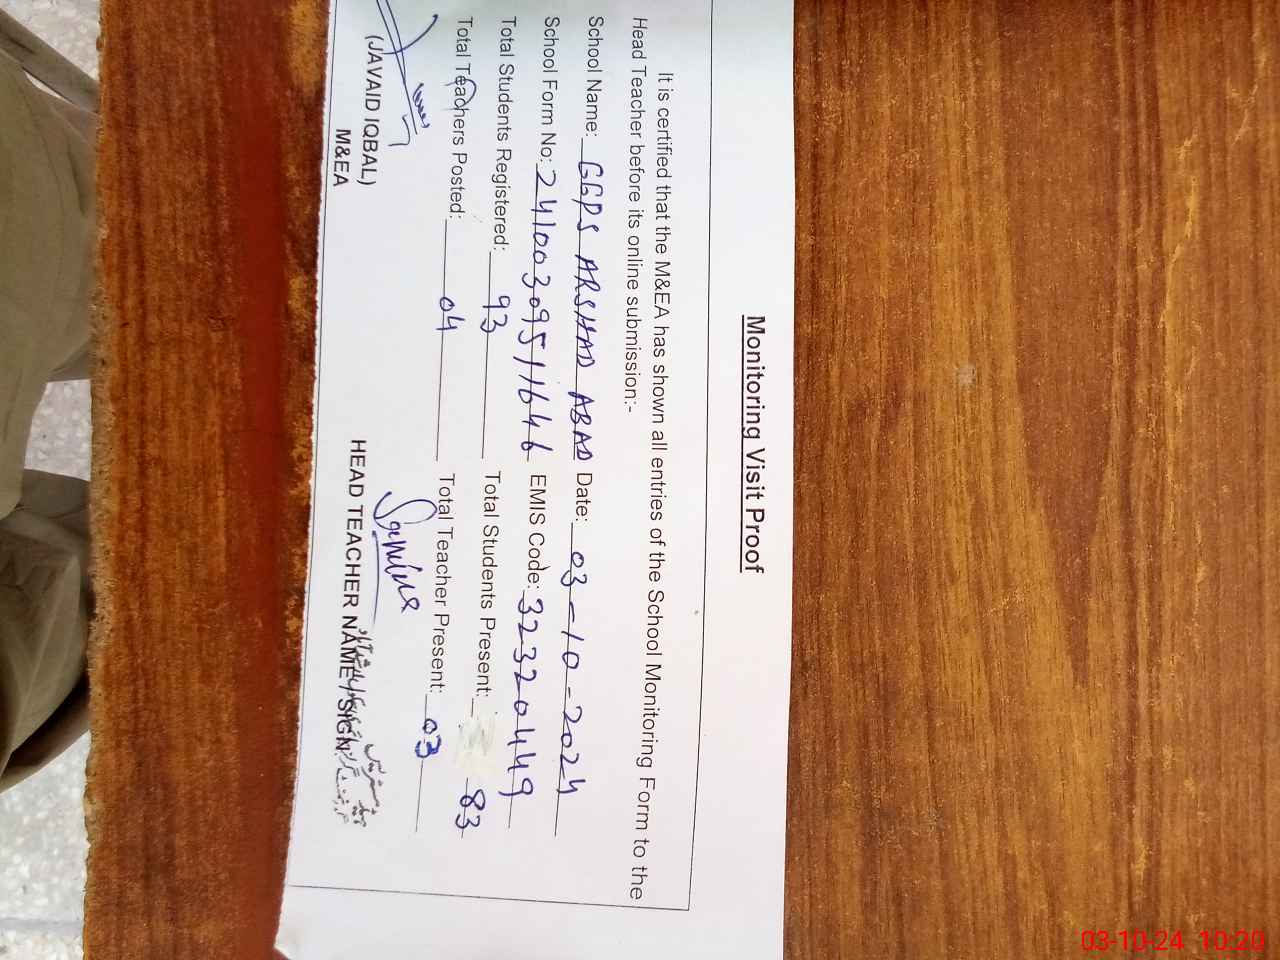 Monitoring Visit Proof
It is certified that the M&EA has shown all entries of the School Monitoring Form to the
Head Teacher before its online submission:-
School Name: GGPS ARSHAD ABAD Date: 03-10-2024
School Form No: 24100309511646 EMIS Code: 32320449
Total Students Registered: 93 Total Students Present: 83
Total Teachers Posted: 04 Total Teacher Present: 03
(JAVAID IQBAL)
M&EA
HEAD TEACHER NAME / SIGN
03-10-24 10:20